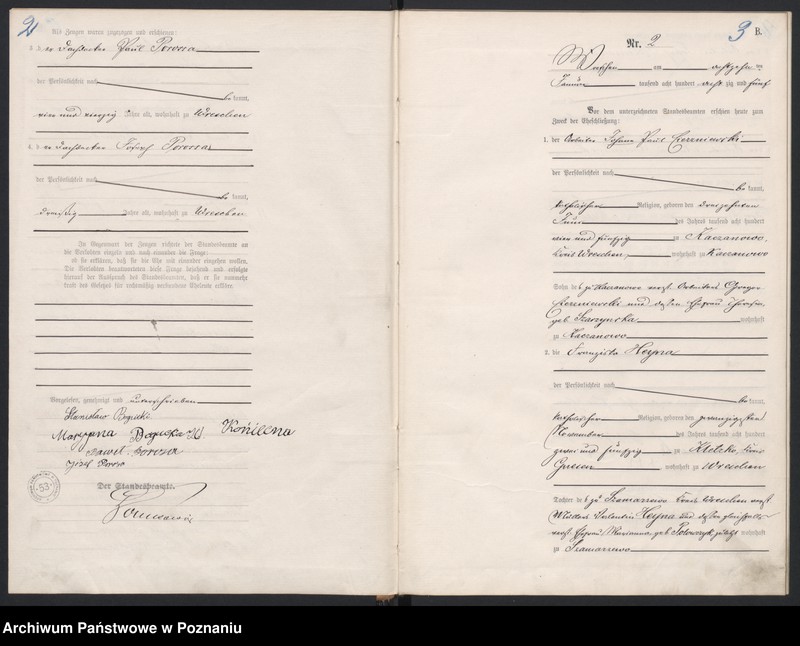 2
Als Zeugen waren zugezogen und erschienen:
3. der Paul
der Persönlichkeit nach
be kannt,
vier und vierzig Jahre alt, wohnhaft zu Wreschen
4. der Josef
der Persönlichkeit nach
be kannt,
dreißig Jahre alt, wohnhaft zu Wreschen
In Gegenwart der Zeugen richtete der Standesbeamte an
die Verlobten einzeln und nach einander die Frage:
ob sie erklären, daß sie die Ehe mit einander eingehen wollen.
Die Verlobten beantworteten diese Frage bejahend und erfolgte
hierauf der Ausspruch des Standesbeamten, daß er sie nunmehr
kraft des Gesetzes für rechtmäßig verbundene Eheleute erkläre.
Vorgelesen, genehmigt und unterschrieben
Stanisław
Maryjana
Paweł
Józef
Der Standesbeamte.
53
3 B.
Nr. 2
Wreschen am achtzehnten
Januar tausend acht hundert acht zig und fünf
Vor dem unterzeichneten Standesbeamten erschien heute zum
Zweck der Eheschließung:
1. der Arbeiter Johann Paul Czerniewski
der Persönlichkeit nach
be kannt,
katholischer Religion, geboren den dreizehnten
Juni des Jahres tausend acht hundert
vier und fünfzig zu Kaczanowo,
Kreis Wreschen, wohnhaft zu Kaczanowo
Sohn des zu Kaczanowo Arbeiters Gregor
Czerniewski und dessen Ehefrau
geb. wohnhaft
zu Kaczanowo
2. die Franziska Heyna
der Persönlichkeit nach
be kannt,
katholischer Religion, geboren den zwanzigsten
November des Jahres tausend acht hundert
zwei und fünfzig zu Kletzko, Kreis
Gnesen wohnhaft zu Wreschen
Tochter des zu Szamarzewo Kreis Wreschen
Valentin Heyna und dessen gleichfalls
Ehefrau Marianna geb. zuletzt wohnhaft
zu Szamarzewo
Archiwum Państwowe w Poznaniu